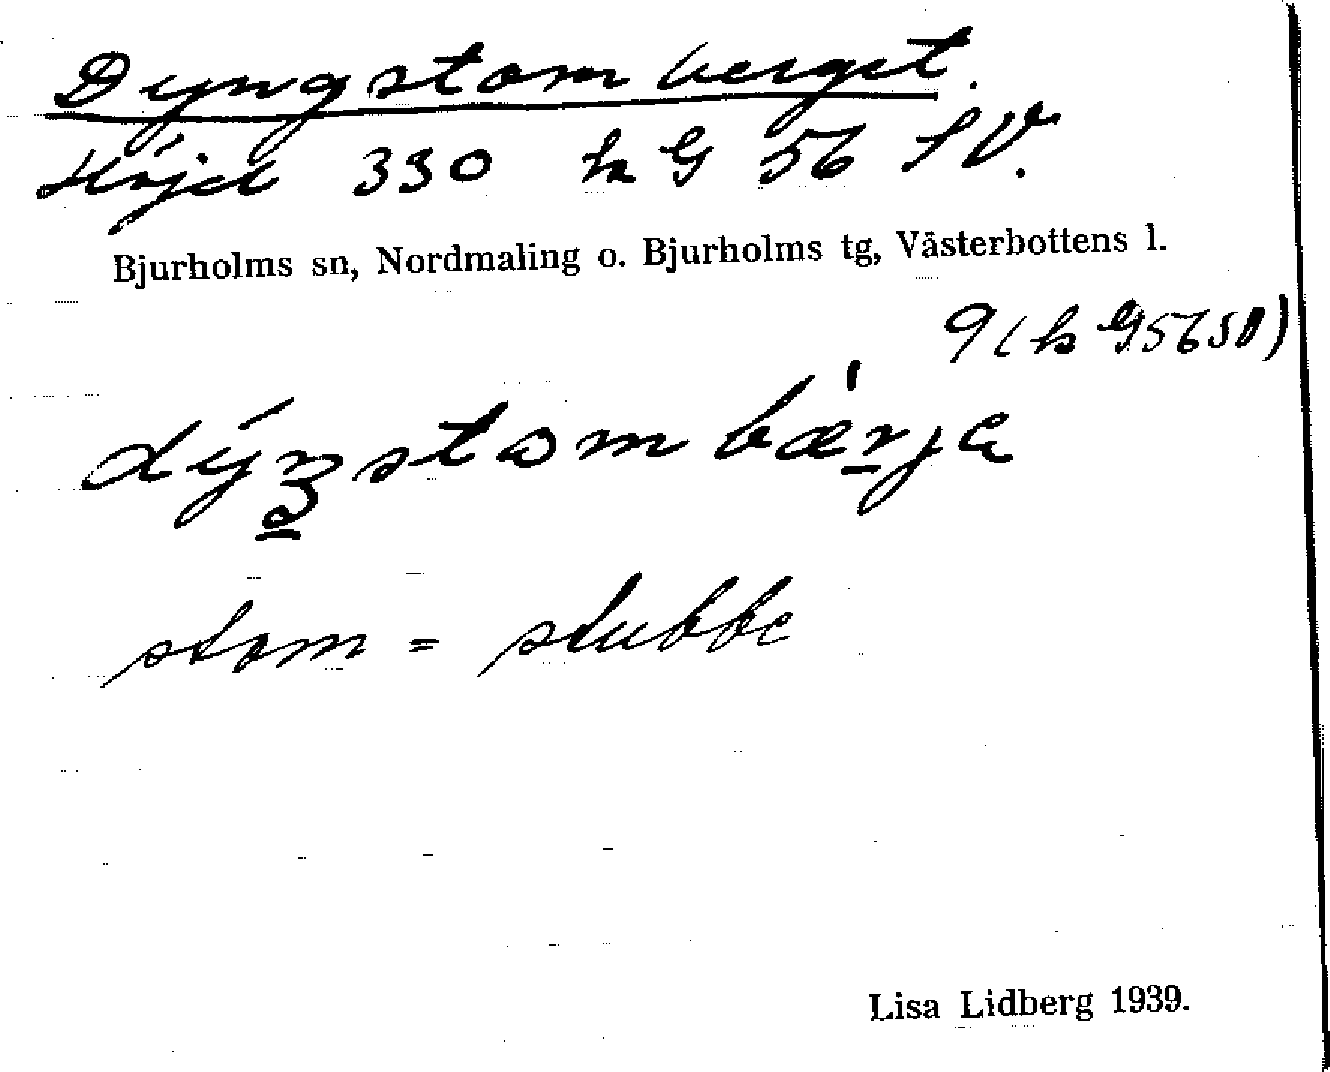 Dyngstomberget.
Höjd 330 k G 56 SV.
Bjurholms sn, Nordmaling o. Bjurholms tg, Västerbottens l.
9 (k G 56 SV)
stom = stubbe
Lisa Lidberg 1939.